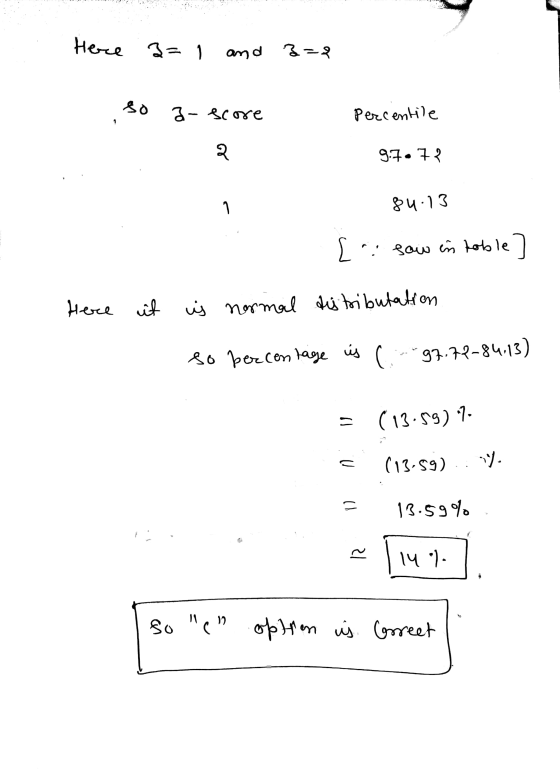 Here z = 1 and z = 2
, so z - score Percentile
2 97.72
1 84.13
[ ∵ saw in table ]
Here it is normal distribution
so percentage is ( 97.72-84.13)
= (13.59) %
= (13.59) %.
= 13.59%
≃ 14 %.
So "c" option is Correct